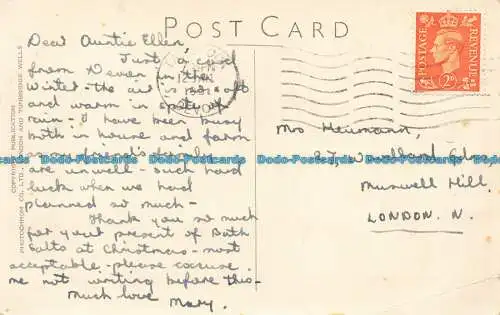 POST CARD
Dear Auntie Ellen,
Just a card
from Devon in the
Winter - the air is so soft
and warm in spite of
rain - I have been busy
both in house and farm
as my friend's family
are unwell - such hard
luck when we had
planned so much -
Thank you so much
for your present of Bath
Salts at Christmas - most
acceptable - please excuse
me not writing before this -
Much love
Mary.
COPYRIGHT PUBLICATION
PHOTOCHROM CO., LTD., LONDON AND TUNBRIDGE WELLS
POSTAGE REVENUE
2D
DEVON
Mrs Heumann,
27, Woodland
Muswell Hill,
LONDON. N.
Postcards Postcards Postcards Postcards Postcards